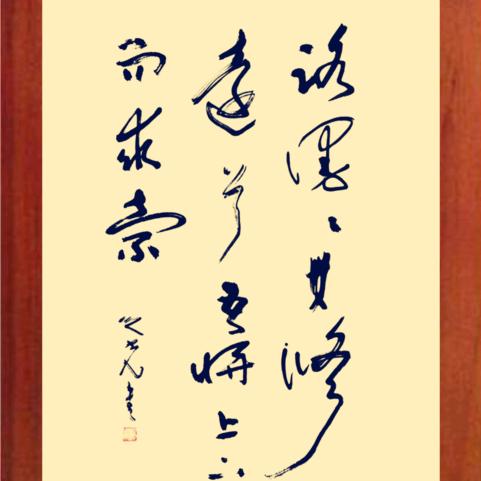 路漫漫其修
遠兮吾將上下
而求索